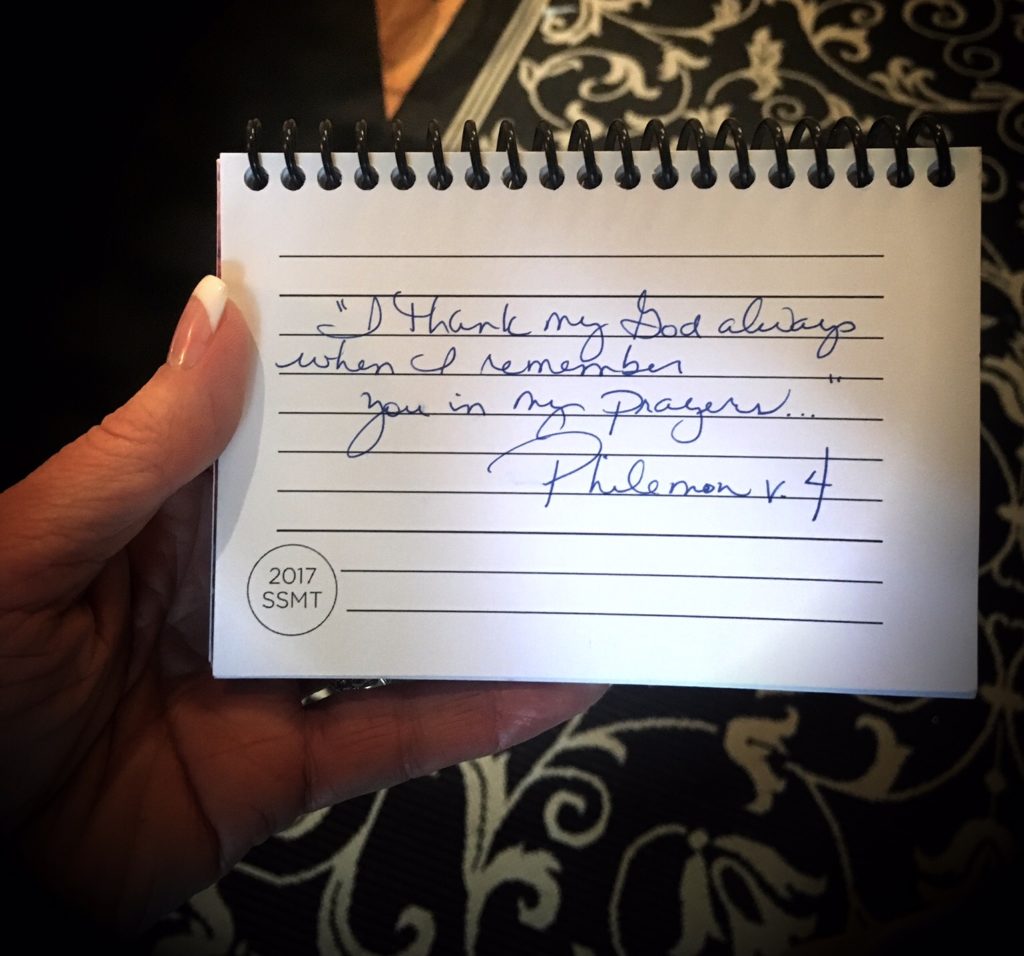 "I thank my God always
when I remember
you in my prayers..."
Philemon v. 4
2017
SSMT